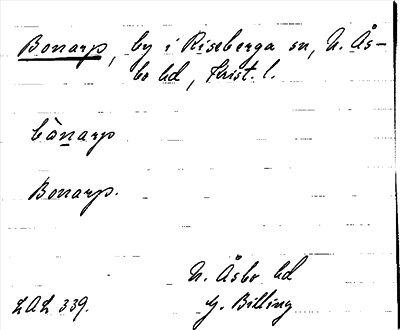 Bonarp, by i Riseberga sn, N. Ås-
bo hd, Krist. l.
bònarp
Bonarp.
N. Åsbo hd
LAL 339.
G. Billing